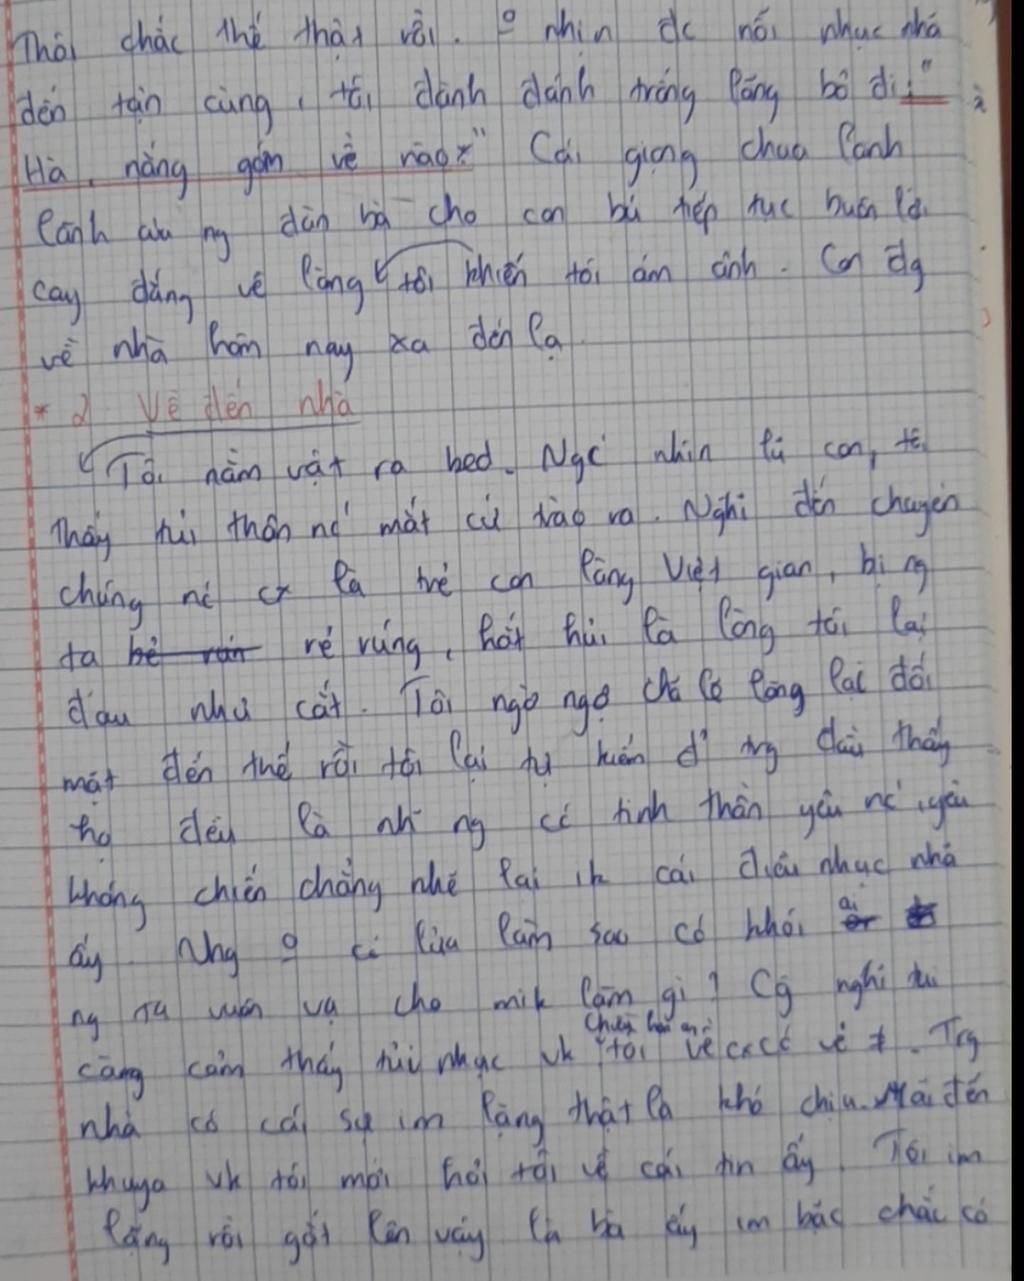 Thôi chắc thế thật rồi. o nhịn đc nỗi nhục nhã
đến tận cùng, tôi đành đánh trống lảng bỏ đi:"
Hà, nắng gớm về nào" Cái giọng chua lanh
lảnh của ng đàn bà cho con bú tiếp tục buôn lời
cay đắng về làng tôi khiến tôi ám ảnh. Con đg
về nhà hôm nay xa đến lạ
* 2 Về đến nhà
Tôi nằm vật ra bed. Ngc nhìn lũ con, tôi
thấy tủi thân nc mắt cứ trào ra. Nghĩ đến chuyện
chúng nó cx là trẻ con làng Việt gian, bị ng
ta rẻ rúng, hắt hủi là lòng tôi lại
đau như cắt. Tôi ngờ ngợ chả lẽ làng lại đốn
mạt đến thế rồi tôi lại tự kiểm đ' trg đầu thấy
họ đều là nh~ ng có tinh thần yêu nc, yêu
kháng chiến chẳng nhẽ lại ik cái điều nhục nhã
ấy. Nhg o có lửa làm sao có khói ai
ng ta vu vạ cho mik làm gì? Cg nghĩ tôi
càng cảm thấy tủi nhục vk tôi chiều hôm ấy về cx có vẻ #. Trg
nhà có cái sự im lặng thật là khó chịu. Mãi đến
khuya vk tôi mới hỏi tôi về cái tin ấy. Tôi im
lặng rồi gắt lên vậy là bà ấy im bặc chắc có